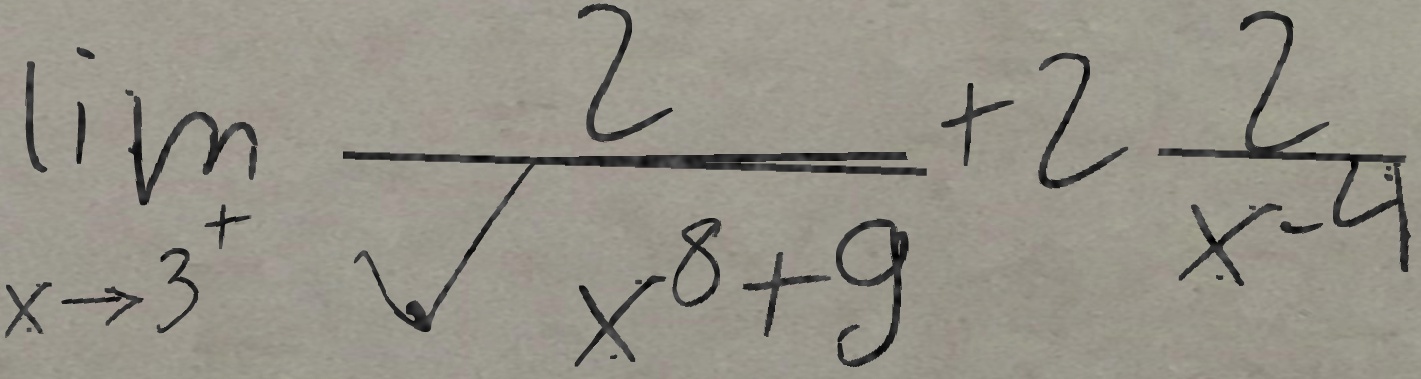 \lim_{x \to 3^+} \frac{2}{\sqrt{x^8+9}} + 2\frac{2}{x^{-4}}